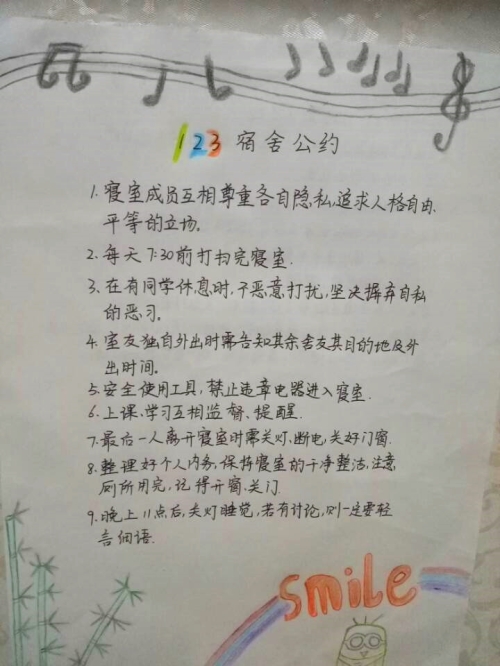 123 宿舍公约
1. 寝室成员互相尊重各自隐私,追求人格自由.
平等的立场.
2. 每天7:30前打扫完寝室.
3. 在有同学休息时,不恶意打扰,坚决摒弃自私
的恶习.
4. 室友独自外出时需告知其余舍友其目的地及外
出时间.
5. 安全使用工具,禁止违章电器进入寝室.
6. 上课、学习互相监督、提醒.
7. 最后一人离开寝室时需关灯、断电,关好门窗.
8. 整理好个人内务,保持寝室的干净整洁,注意
厕所用完,记得开窗、关门.
9. 晚上11点后,关灯睡觉,若有讨论,则一定要轻
言细语.
smile